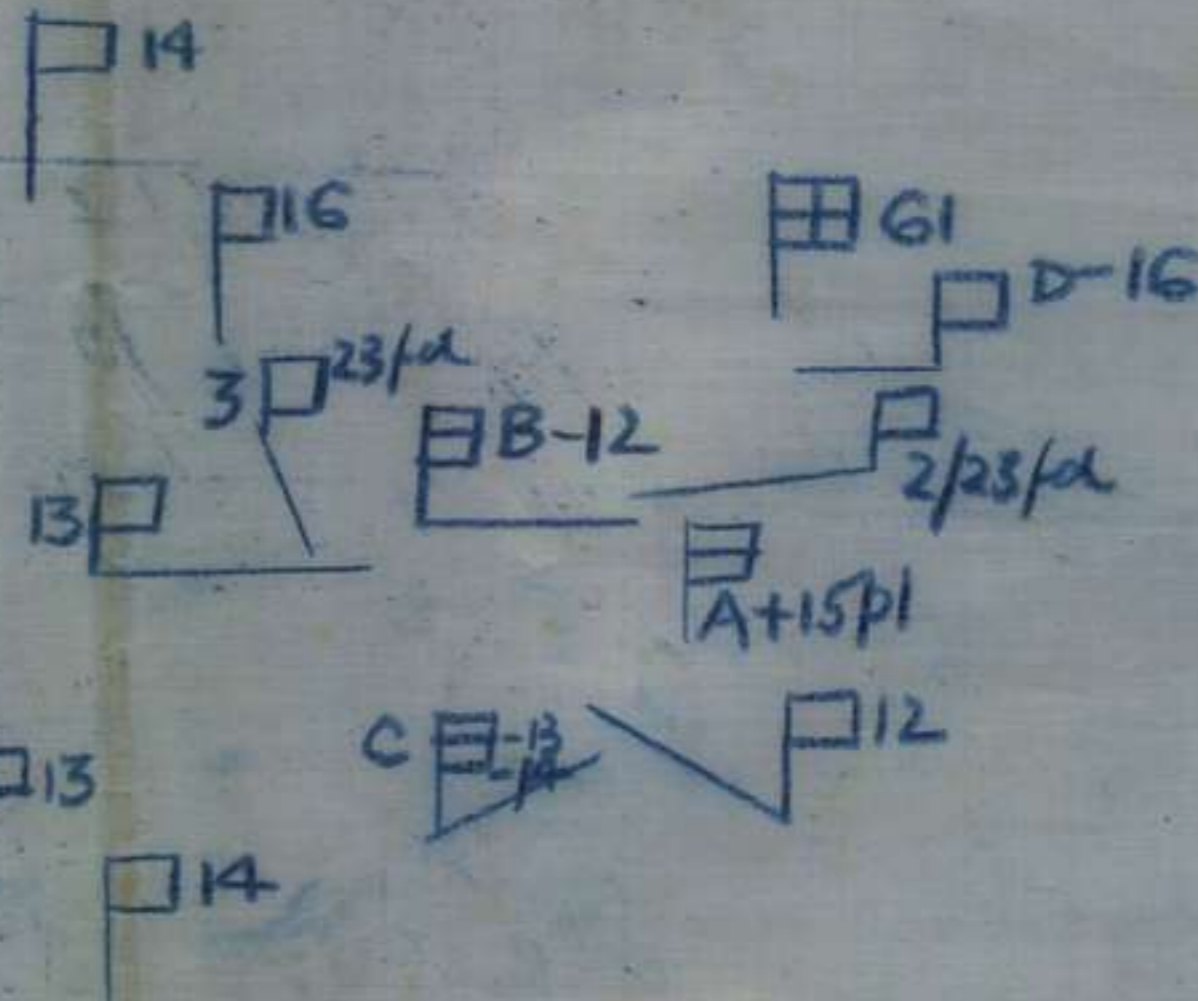 14
16
61
D-16
3
23/d
B-12
2/23/d
13
A+15pl
C
-13
-14
12
13
14